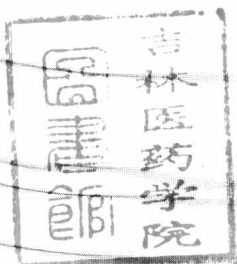 吉林医药学院
圖書館